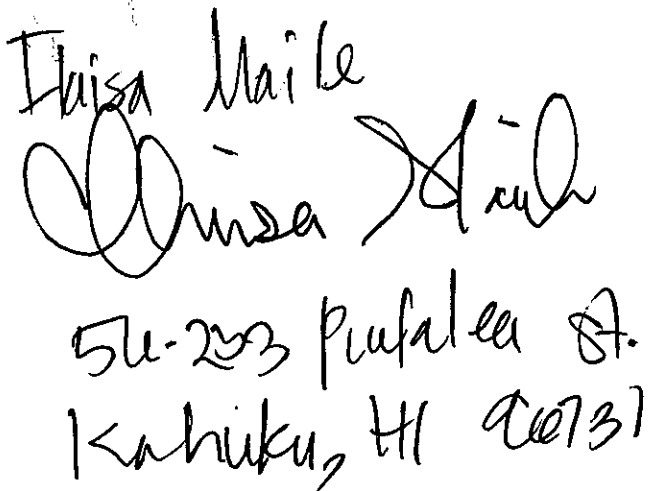 Ilaisa Maile
56-233 Pualalea St.
Kahuku, HI 96731